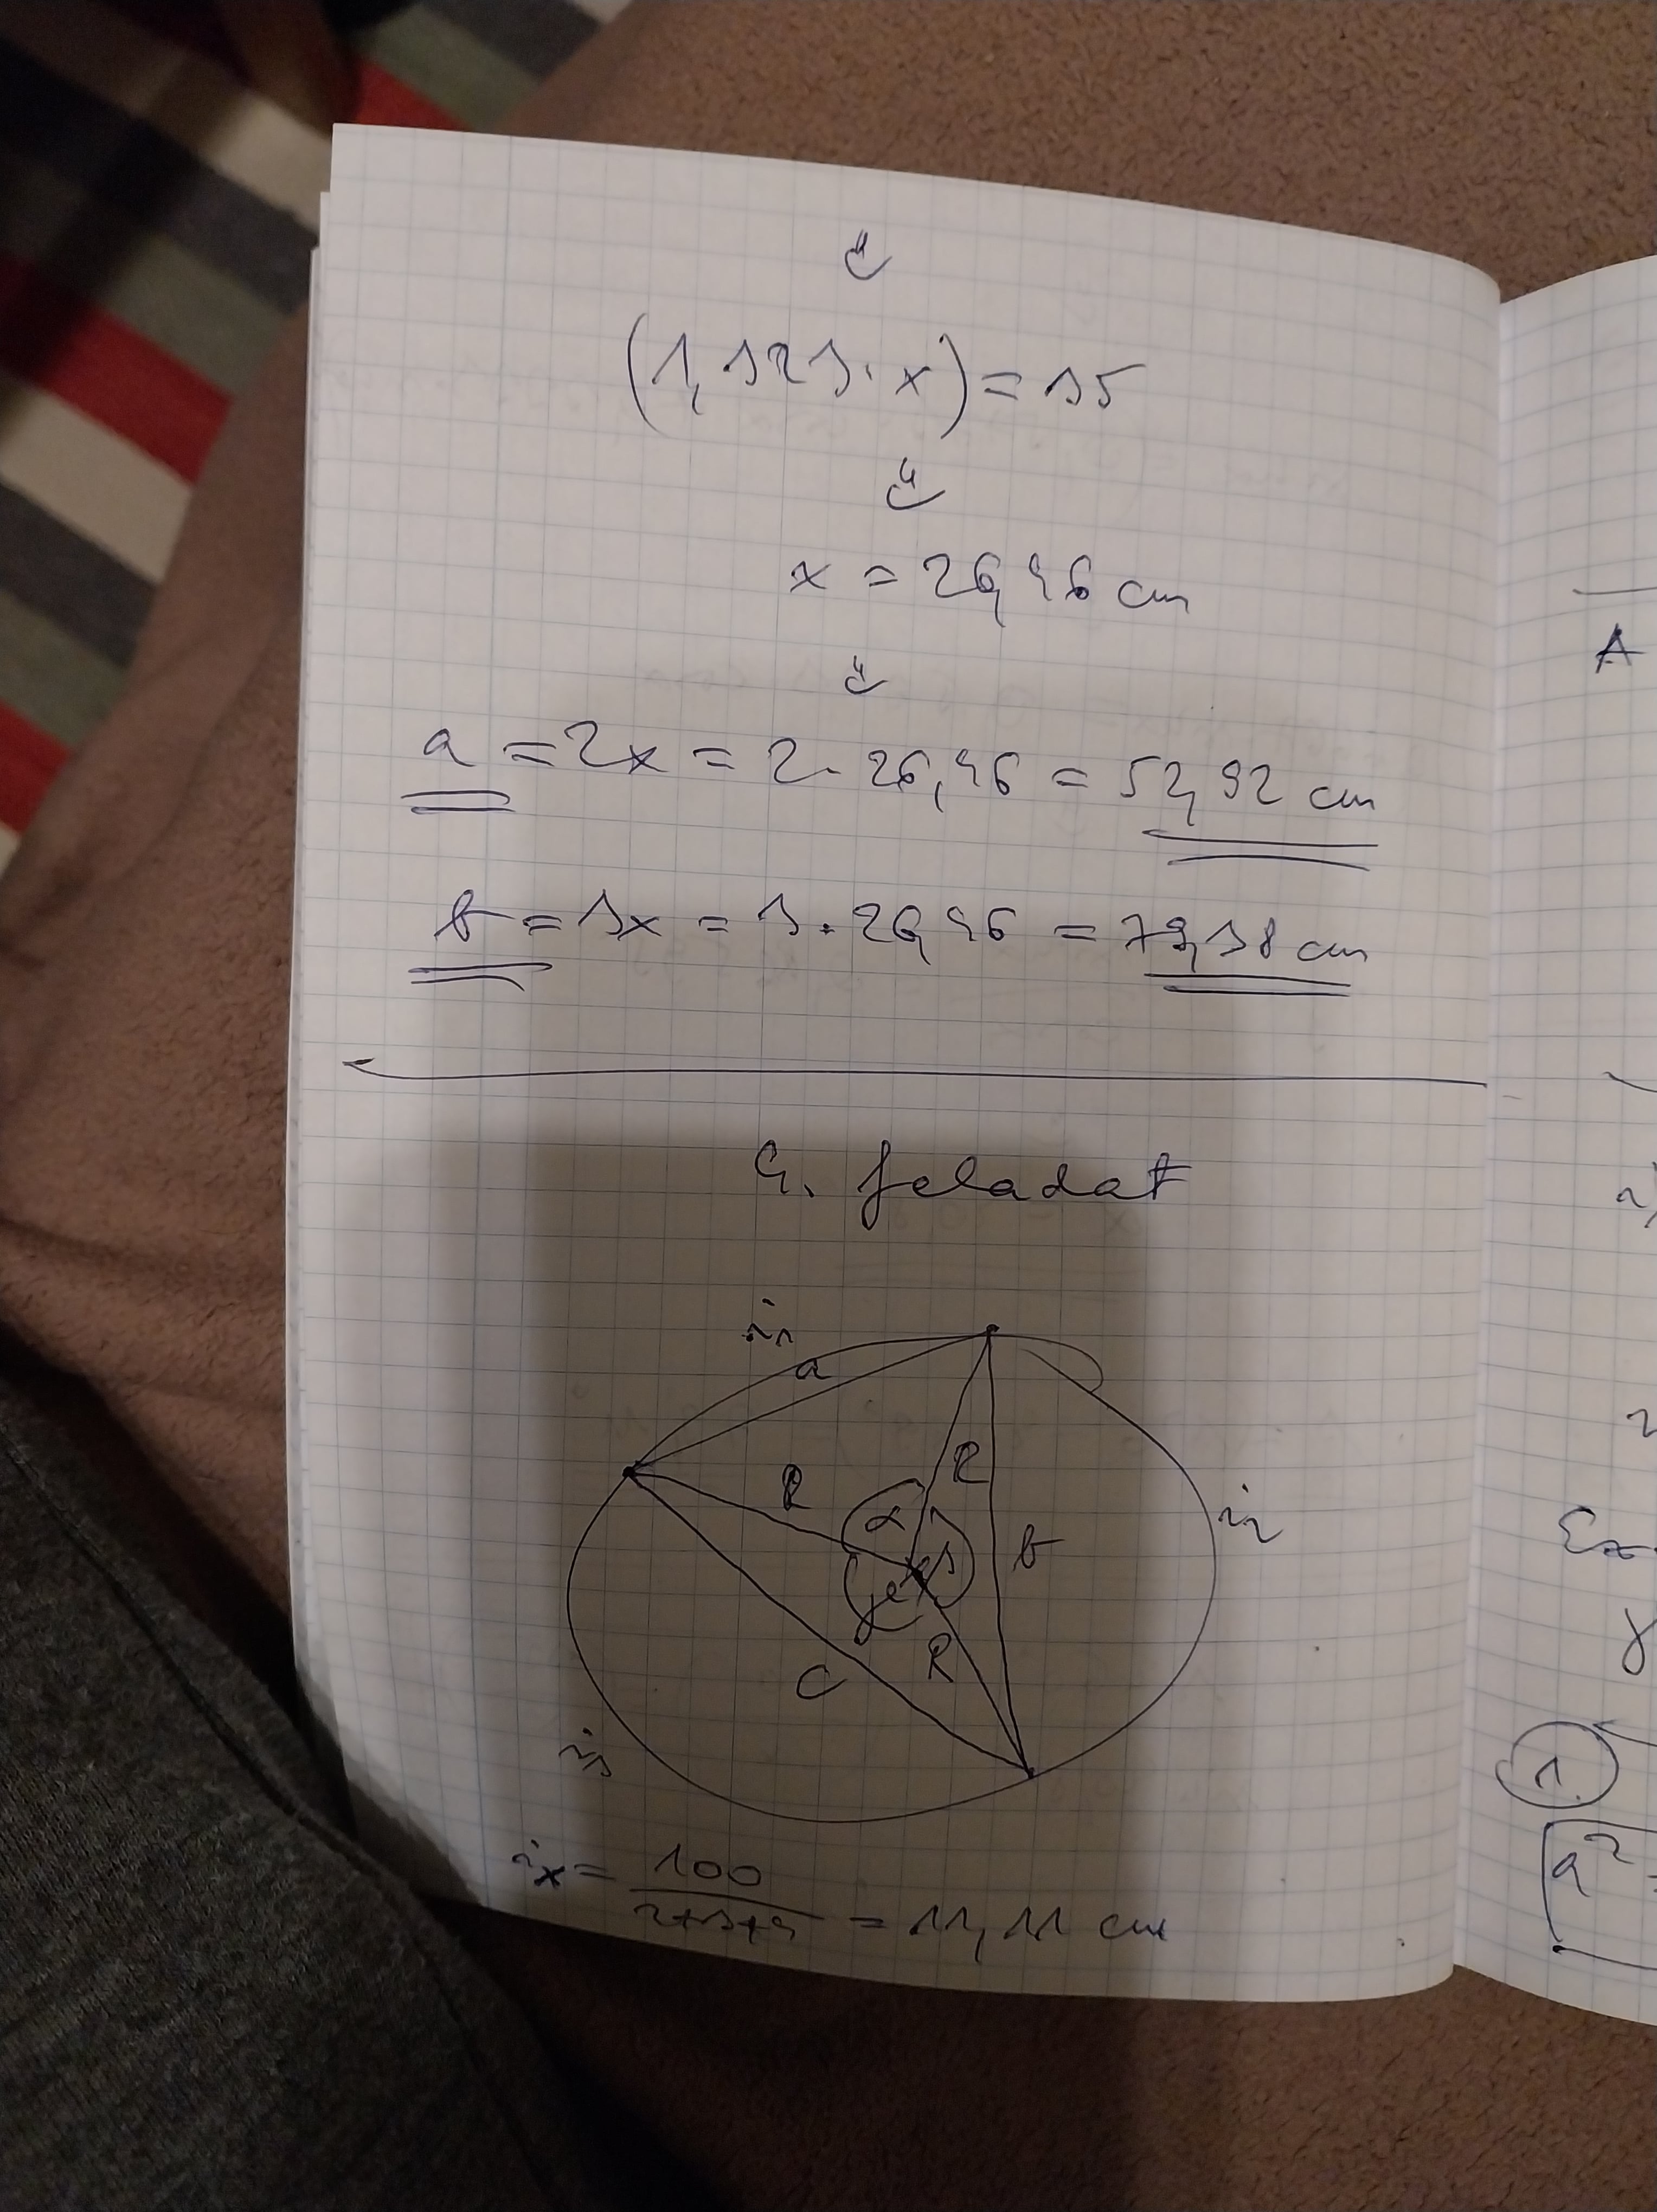 ⇓
(1,323·x) = 35
⇓
x = 26,46 cm
⇓
a = 2x = 2·26,46 = 52,92 cm
b = 3x = 3·26,46 = 79,38 cm
4. feladat
i₁
a
R
R
α
β
γ
b
i₂
R
c
i₃
iₓ = 100/(2+3+4) = 11,11 cm
A
1.
a²